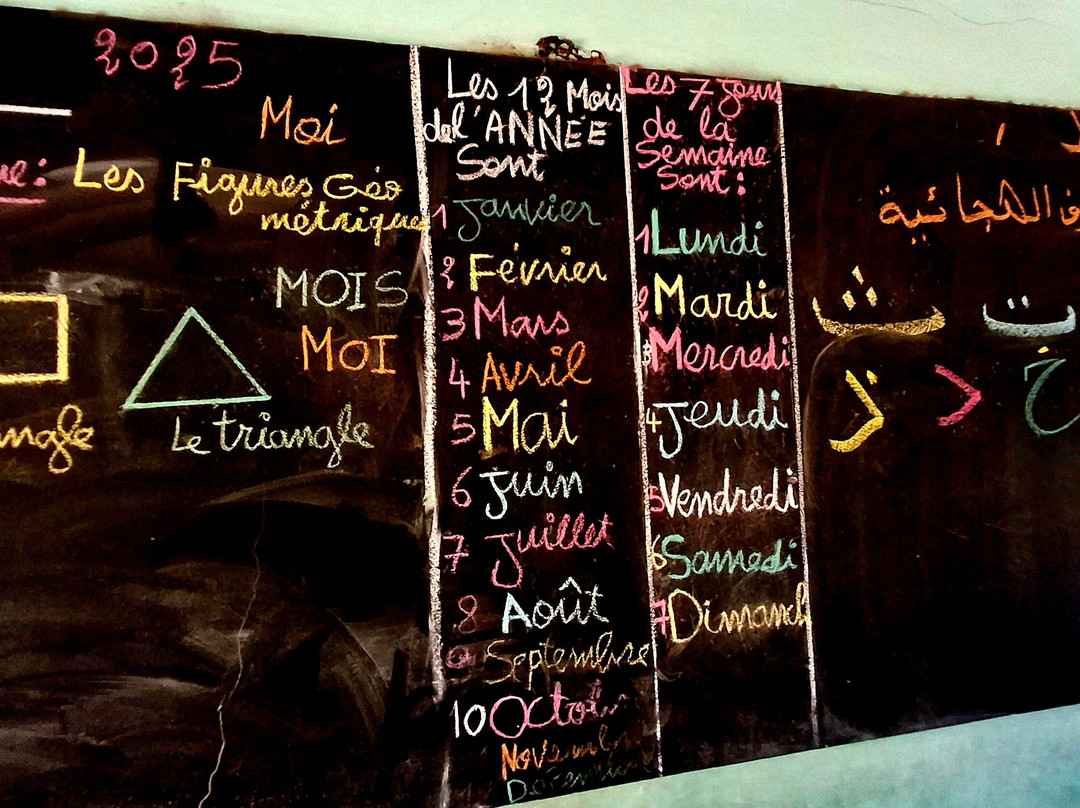 2025
Moi
ue: Les Figures Géo
métrique
MOIS
MOI
angle
Le triangle
Les 12 Mois
de l'ANNÉE
Sont
1 Janvier
2 Février
3 Mars
4 Avril
5 Mai
6 Juin
7 Juillet
8 Août
9 Septembre
10 Octob
Novemb
Décemb
Les 7 Jours
de la
Semaine
Sont :
1 Lundi
2 Mardi
3 Mercredi
4 Jeudi
5 Vendredi
6 Samedi
7 Dimanch
ف الهجائية
ت ث
خ د ذ